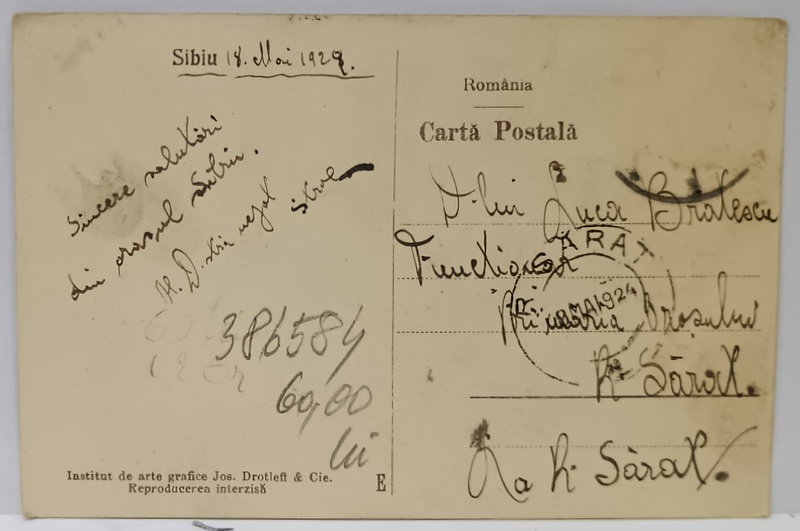 Sibiu 18. Mai 1929.
Sincere salutări
din orașul Sibiu.
386584
60,00
lei
Institut de arte grafice Jos. Drotleff & Cie.
Reproducerea interzisă
E
România
Cartă Postală
D-lui Luca Bratescu
Functionar
Primăria Orașului
R. Sărat.
La R. Sărat.
SARAT
MAI 924